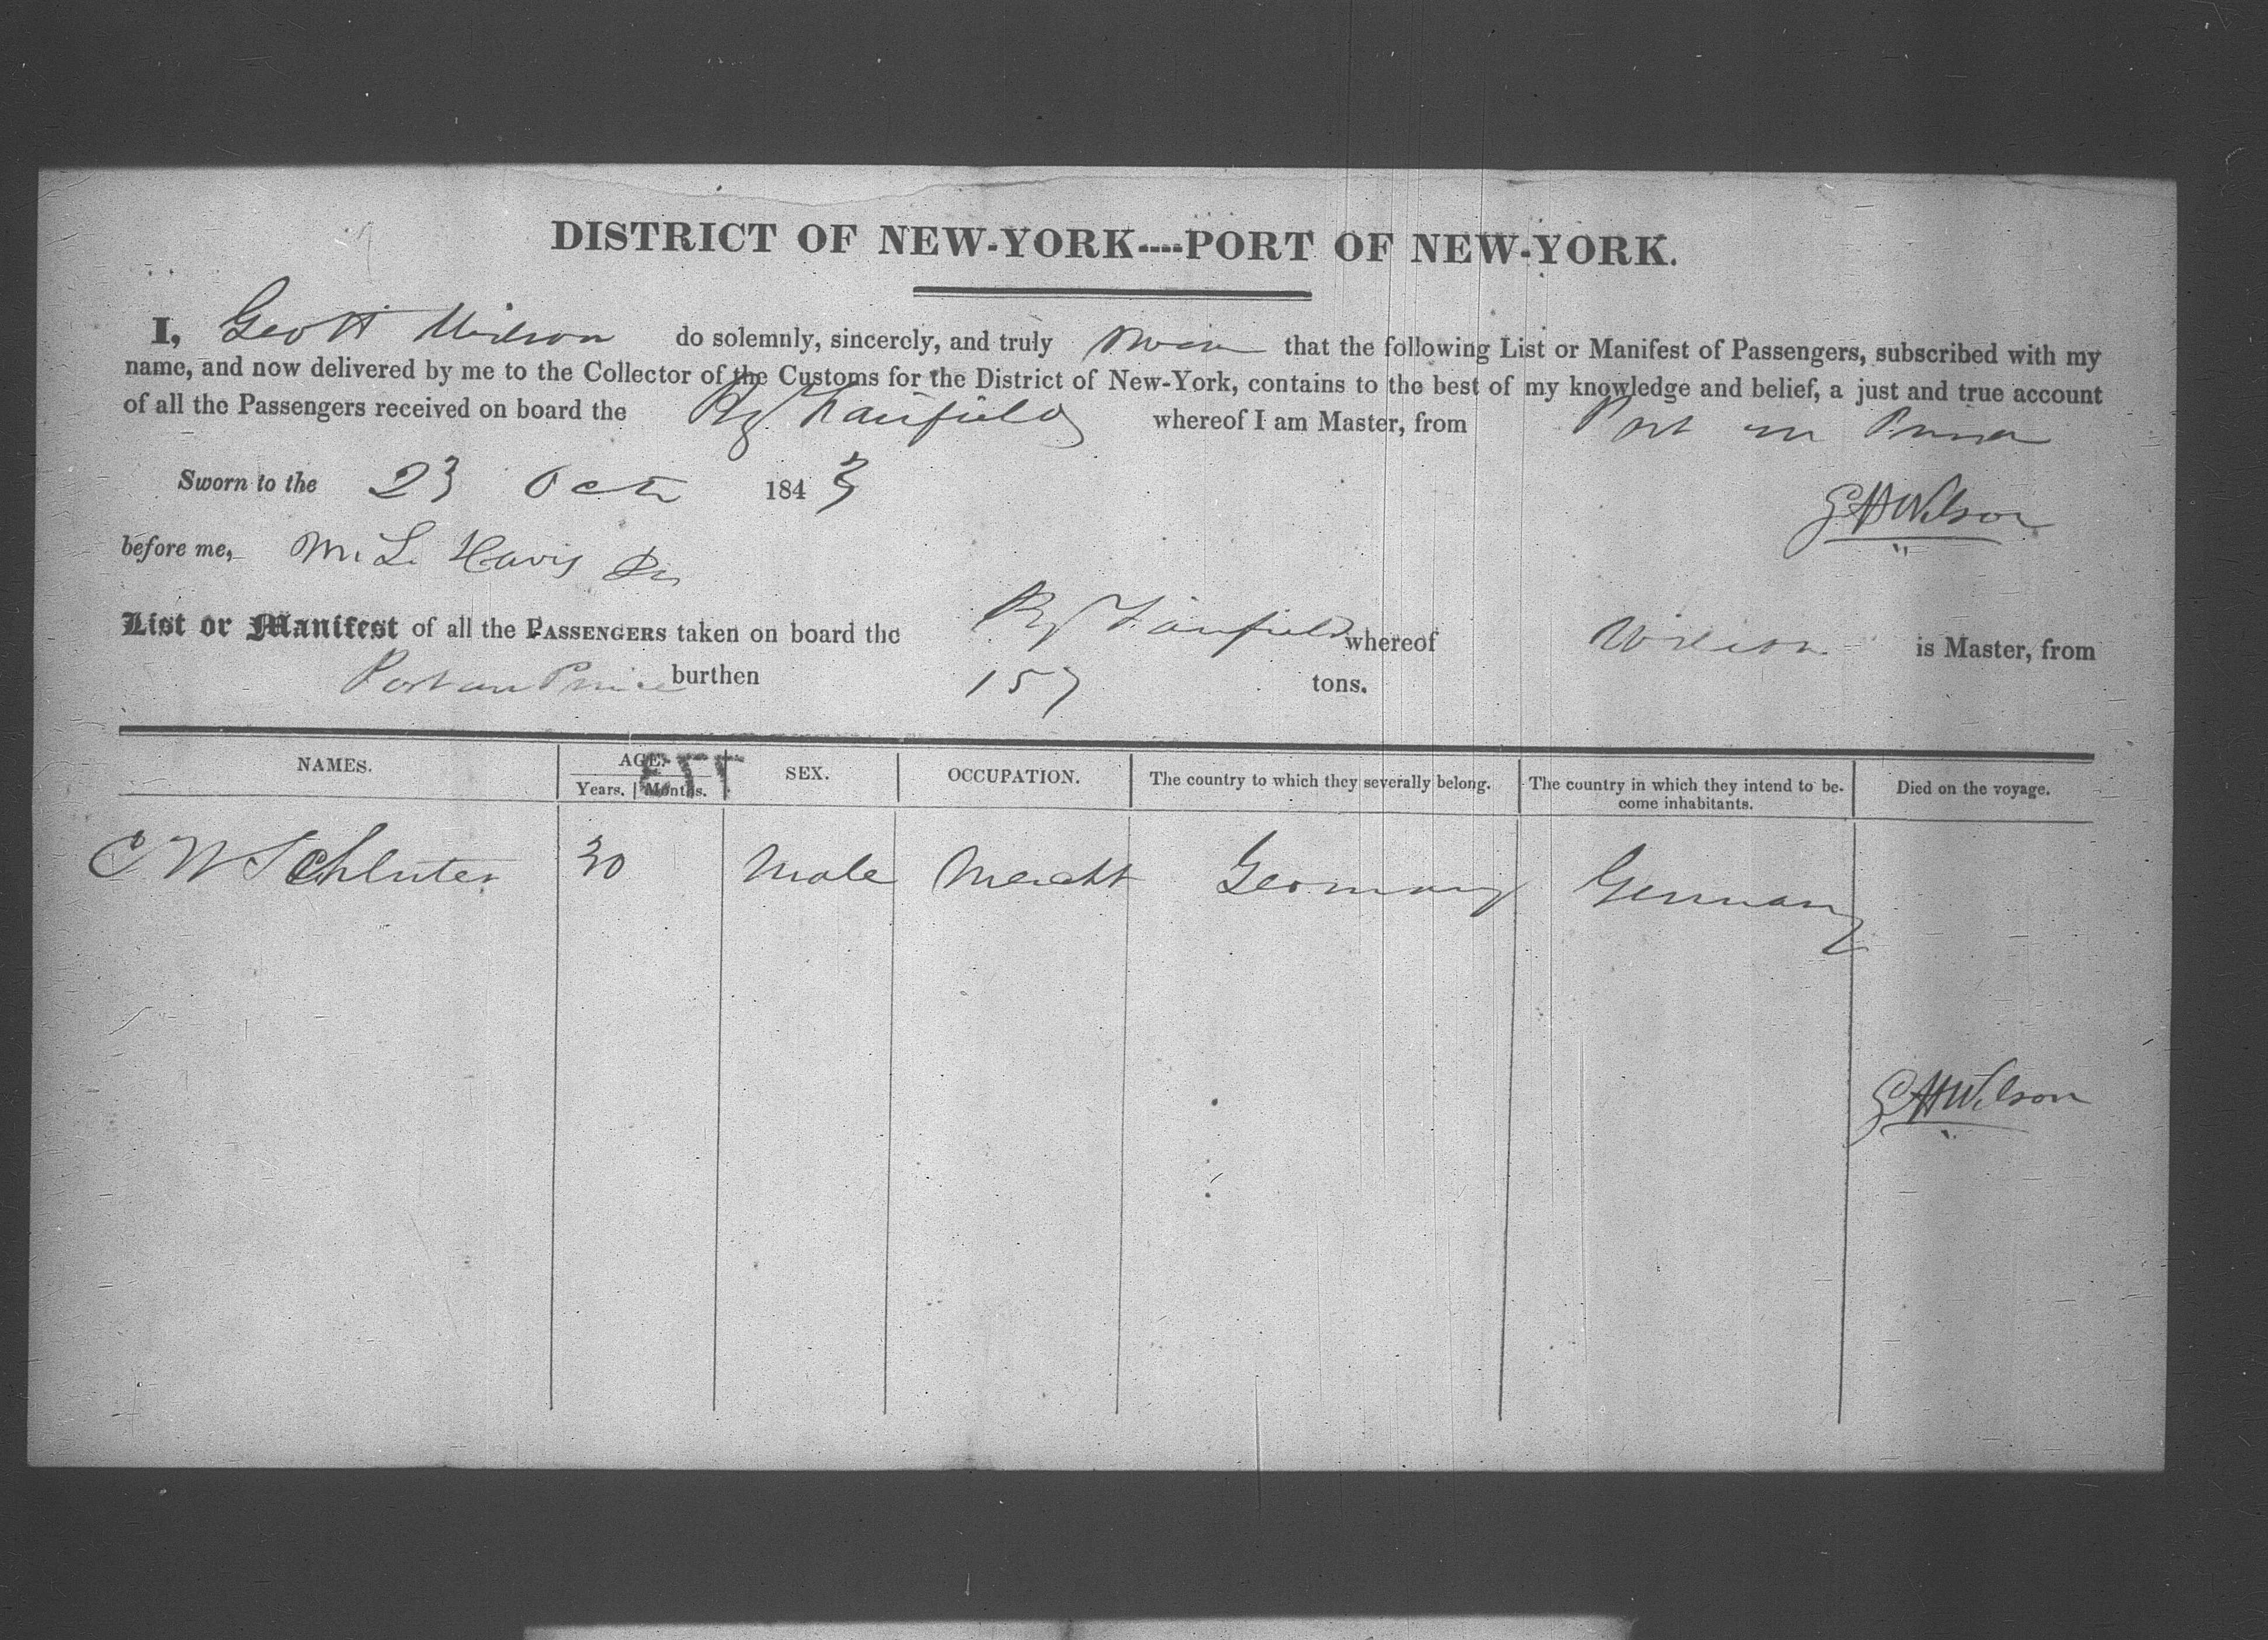 DISTRICT OF NEW-YORK----PORT OF NEW-YORK.
I, Geo H Wilson do solemnly, sincerely, and truly swear that the following List or Manifest of Passengers, subscribed with my
name, and now delivered by me to the Collector of the Customs for the District of New-York, contains to the best of my knowledge and belief, a just and true account
of all the Passengers received on board the Fairfield whereof I am Master, from Port au Prince
Sworn to the 23 Oct 1843
G H Wilson
before me,
List or Manifest of all the PASSENGERS taken on board the Fairfield whereof Wilson is Master, from
Port au Prince burthen 157 tons.
NAMES. AGE. SEX. OCCUPATION. The country to which they severally belong. The country in which they intend to be-
come inhabitants. Died on the voyage.
Years. Months.
C W Schluter 30 Male Mercht Germany Germany
G H Wilson